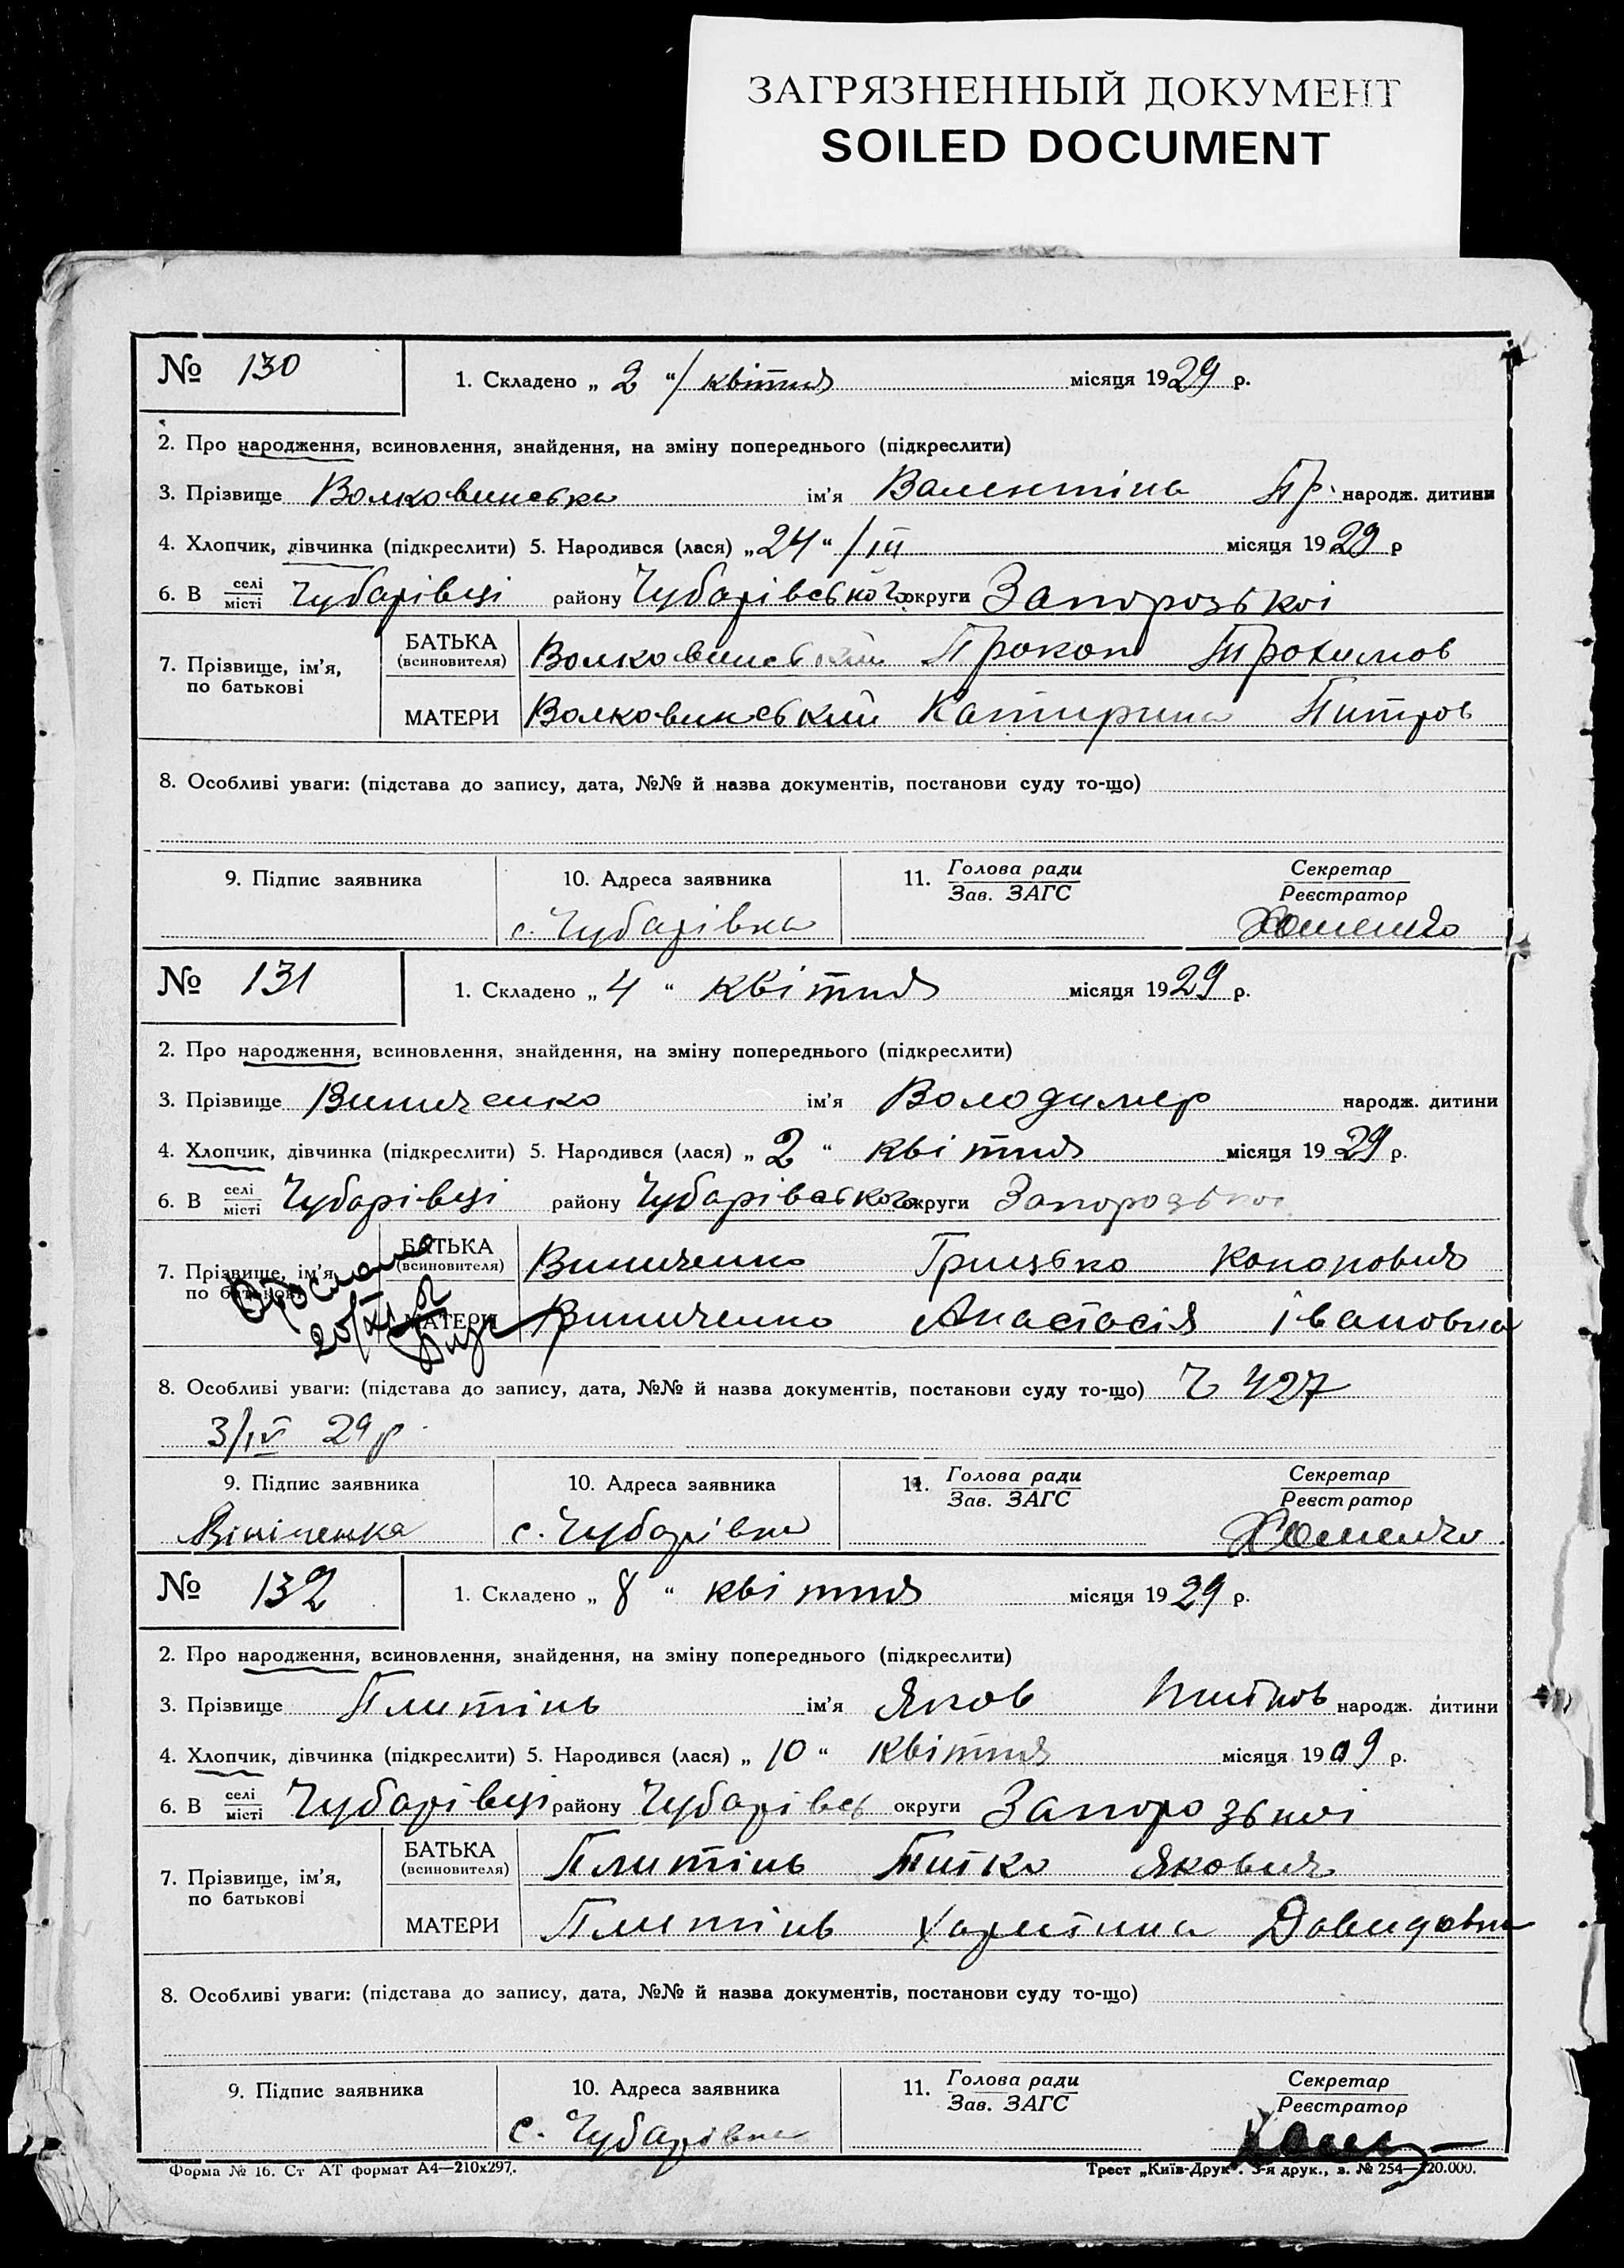 ЗАГРЯЗНЕННЫЙ ДОКУМЕНТ
SOILED DOCUMENT
№ 130 1. Складено „ 2 “/ квітня місяця 1929 р.
2. Про народження, всиновлення, знайдення, на зміну попереднього (підкреслити)
3. Прізвище Волковинська ім'я Валентіна Пр. народж. дитини
4. Хлопчик, дівчинка (підкреслити) 5. Народився (лася) „24“ /III місяця 1929 р
6. В селі/місті Чубарівці району Чубарівського округи Запорозькоі
7. Прізвище, ім'я, по батькові
БАТЬКА (всиновителя) Волковинський Прокоп Трохимов
МАТЕРИ Волковинський Катирина Питров
8. Особливі уваги: (підстава до запису, дата, №№ й назва документів, постанови суду то-що)
9. Підпис заявника 10. Адреса заявника 11. Голова ради/Зав. ЗАГС Секретар/Реєстратор
с. Чубарівка Хоменко
№ 131 1. Складено „ 4 “ квітня місяця 1929 р.
2. Про народження, всиновлення, знайдення, на зміну попереднього (підкреслити)
3. Прізвище Виниченко ім'я Володимер народж. дитини
4. Хлопчик, дівчинка (підкреслити) 5. Народився (лася) „ 2 “ квітня місяця 1929 р.
6. В селі/місті Чубарівці району Чубарівського округи Запорозькоі
7. Прізвище, ім'я, по батькові
БАТЬКА (всиновителя) Виниченко Грицько Конопович
МАТЕРИ Виниченко Анастасія Івановна
20/XI
8. Особливі уваги: (підстава до запису, дата, №№ й назва документів, постанови суду то-що) Ч 427
3/IV 29 р
9. Підпис заявника 10. Адреса заявника 11. Голова ради/Зав. ЗАГС Секретар/Реєстратор
Вініченка с. Чубарівка Хоменко
№ 132 1. Складено „ 8 “ квітня місяця 1929 р.
2. Про народження, всиновлення, знайдення, на зміну попереднього (підкреслити)
3. Прізвище Плитінь ім'я Яков народж. дитини
4. Хлопчик, дівчинка (підкреслити) 5. Народився (лася) „ 10 “ квітня місяця 1909 р.
6. В селі/місті Чубарівці району Чубарівсь округи Запорозькоі
7. Прізвище, ім'я, по батькові
БАТЬКА (всиновителя) Плитінь Титко Якович
МАТЕРИ Плитінь Харитина Давидовна
8. Особливі уваги: (підстава до запису, дата, №№ й назва документів, постанови суду то-що)
9. Підпис заявника 10. Адреса заявника 11. Голова ради/Зав. ЗАГС Секретар/Реєстратор
с. Чубарівка
Форма № 16. Ст АТ формат А4—210х297. Трест „Київ-Друк“. 3-я друк., з. № 254—120.000.